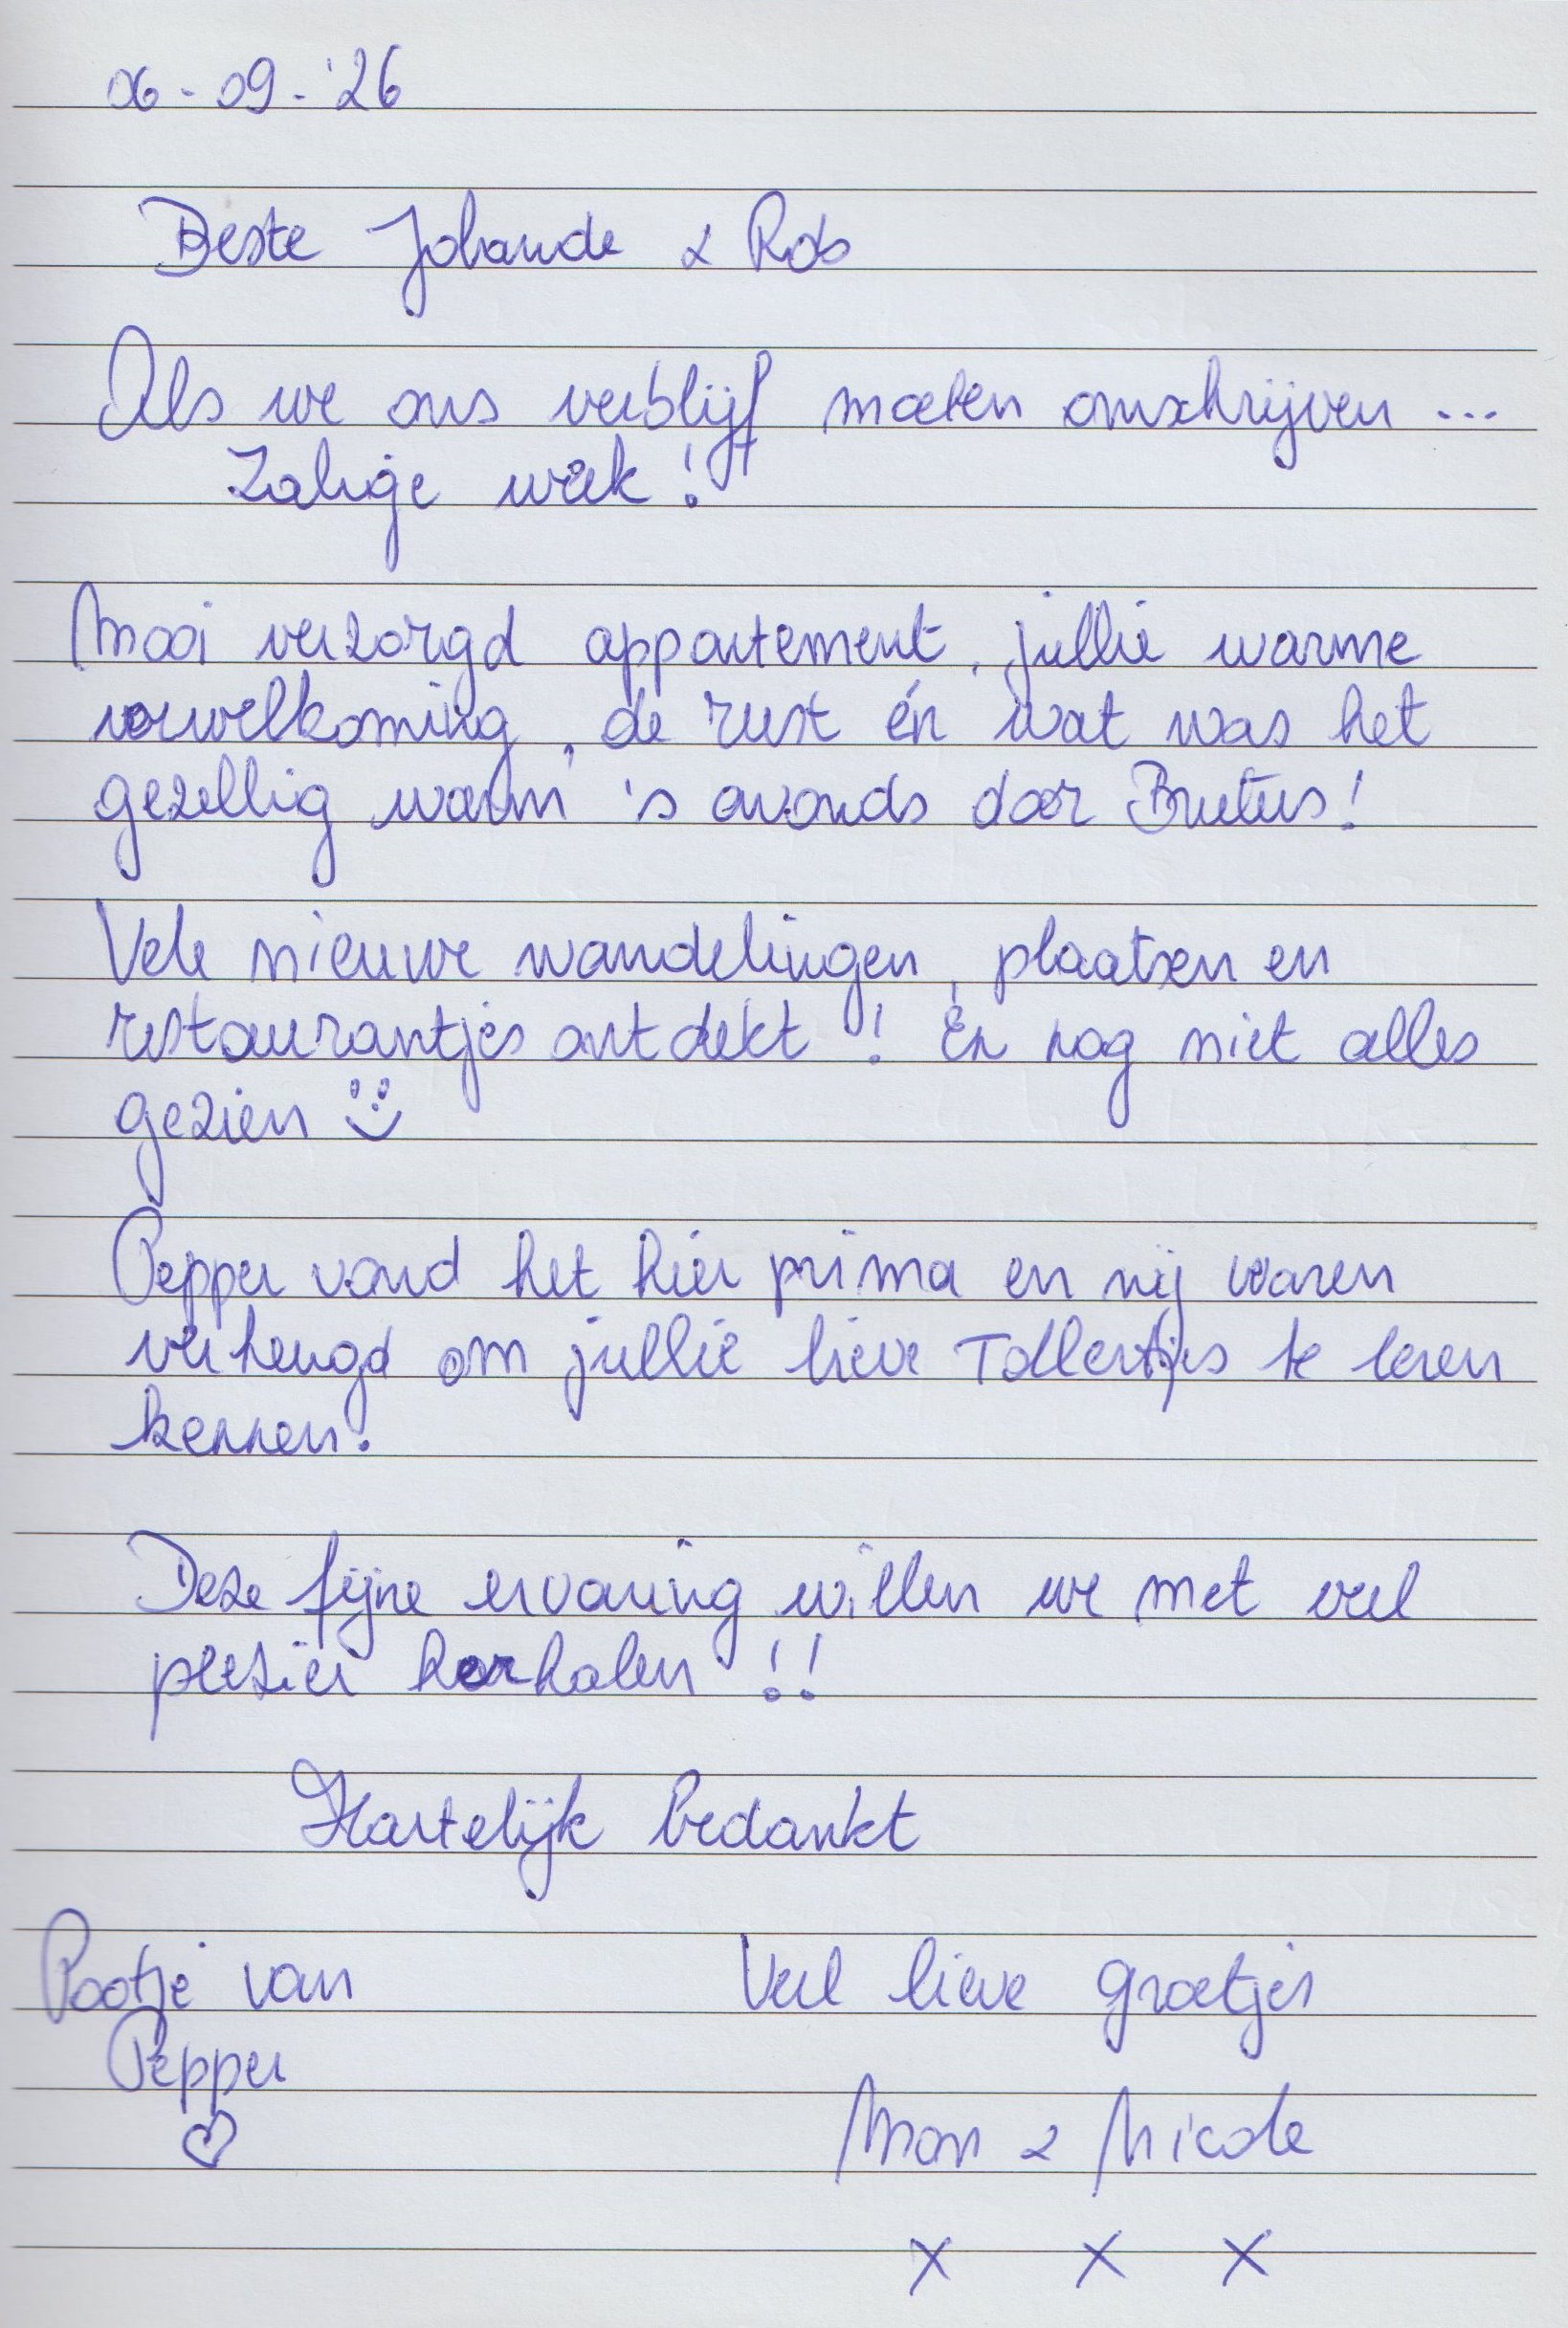 06-09-'26
Beste Jolande & Rob
Als we ons verblijf moeten omschrijven ...
Zalige week!
Mooi verzorgd appartement, jullie warme
verwelkoming, de rust én wat was het
gezellig warm 's avonds door Brutus!
Vele nieuwe wandelingen, plaatsen en
restaurantjes ontdekt! En nog niet alles
gezien
Pepper vond het hier prima en wij waren
verheugd om jullie lieve Tollertjes te leren
kennen.
Deze fijne ervaring willen we met veel
plezier herhalen!!
Hartelijk bedankt
Pootje van
Pepper
Veel lieve groetjes
Mon & Nicole
x x x